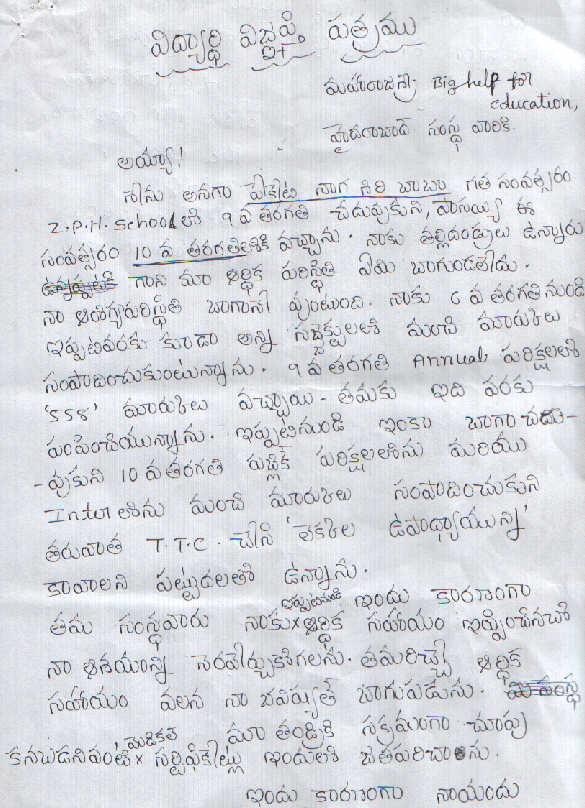 విద్యార్థి విజ్ఞప్తి పత్రము
మహారాజశ్రీ Big help for
education,
హైదరాబాద్ సంస్థ వారికి.
అయ్యా!
నేను అనగా పేకేటి నాగ గిరి బాబు గత సంవత్సరం
Z.P.H. School లో 9 వ తరగతి చదువుకుని, పాసయ్యి ఈ
సంవత్సరం 10 వ తరగతిలోకి వచ్చాను. నాకు తల్లిదండ్రులు ఉన్నారు
గాని మా ఆర్థిక పరిస్థితి ఏమి బాగుండలేదు.
నా ఆరోగ్యపరిస్థితి బాగానే వుంటుంది. నాకు 6 వ తరగతి నుండి
ఇప్పటివరకు కూడా అన్ని సబ్జెక్టులలో మంచి మార్కులు
సంపాదించుకుంటున్నాను. 9 వ తరగతి Annual పరిక్షలలో
'558' మార్కులు వచ్చాయి - తమకు ఇది వరకు
పంపించియున్నాను. ఇప్పటినుండి ఇంకా బాగా చదు-
-వుకుని 10 వ తరగతి పబ్లిక్ పరిక్షలలోను మరియు
Inter లోను మంచి మార్కులు సంపాదించుకుని
తరువాత T.T.C. చేసి 'లెక్కల ఉపాధ్యాయున్ని'
కావాలని పట్టుదలతో ఉన్నాను.
ఇందు కారణంగా
తమ సంస్థవారు నాకు x ఆర్థిక సహాయం ఇప్పించినచో
నా ఆశయాన్ని నెరవేర్చుకోగలను. తమరిచ్చే ఆర్థిక
సహాయం వలన నా భవిష్యత్ బాగుపడును.
మా తండ్రికి సక్రమంగా చూపు
కనబడనిపంతో x మెడికల్ సర్టిఫికెట్లు ఇందులో జతపరిచాను.
ఇందు కారణంగా నాయందు